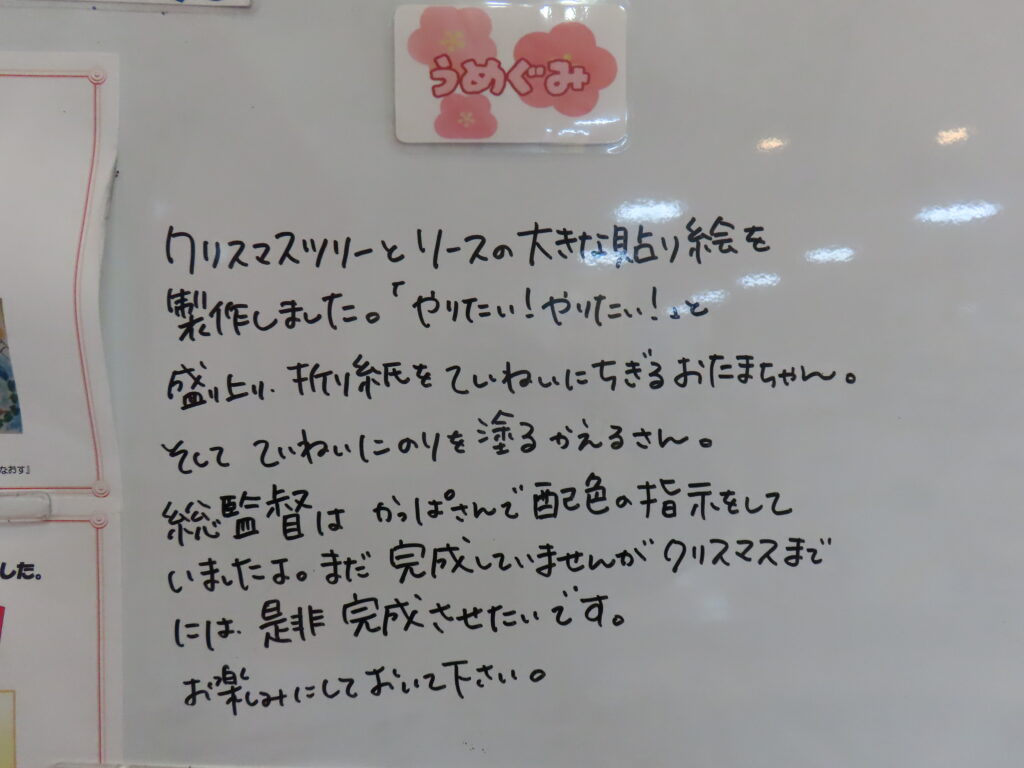 うめぐみ
クリスマスツリーとリースの大きな貼り絵を
製作しました。「やりたい！やりたい！」と
盛り上り、折り紙をていねいにちぎるおたまちゃん。
そしてていねいにのりを塗るかえるさん。
総監督はかっぱさんで配色の指示をして
いましたよ。まだ完成していませんがクリスマスまで
には、是非完成させたいです。
お楽しみにしておいて下さい。
なおす』
した。